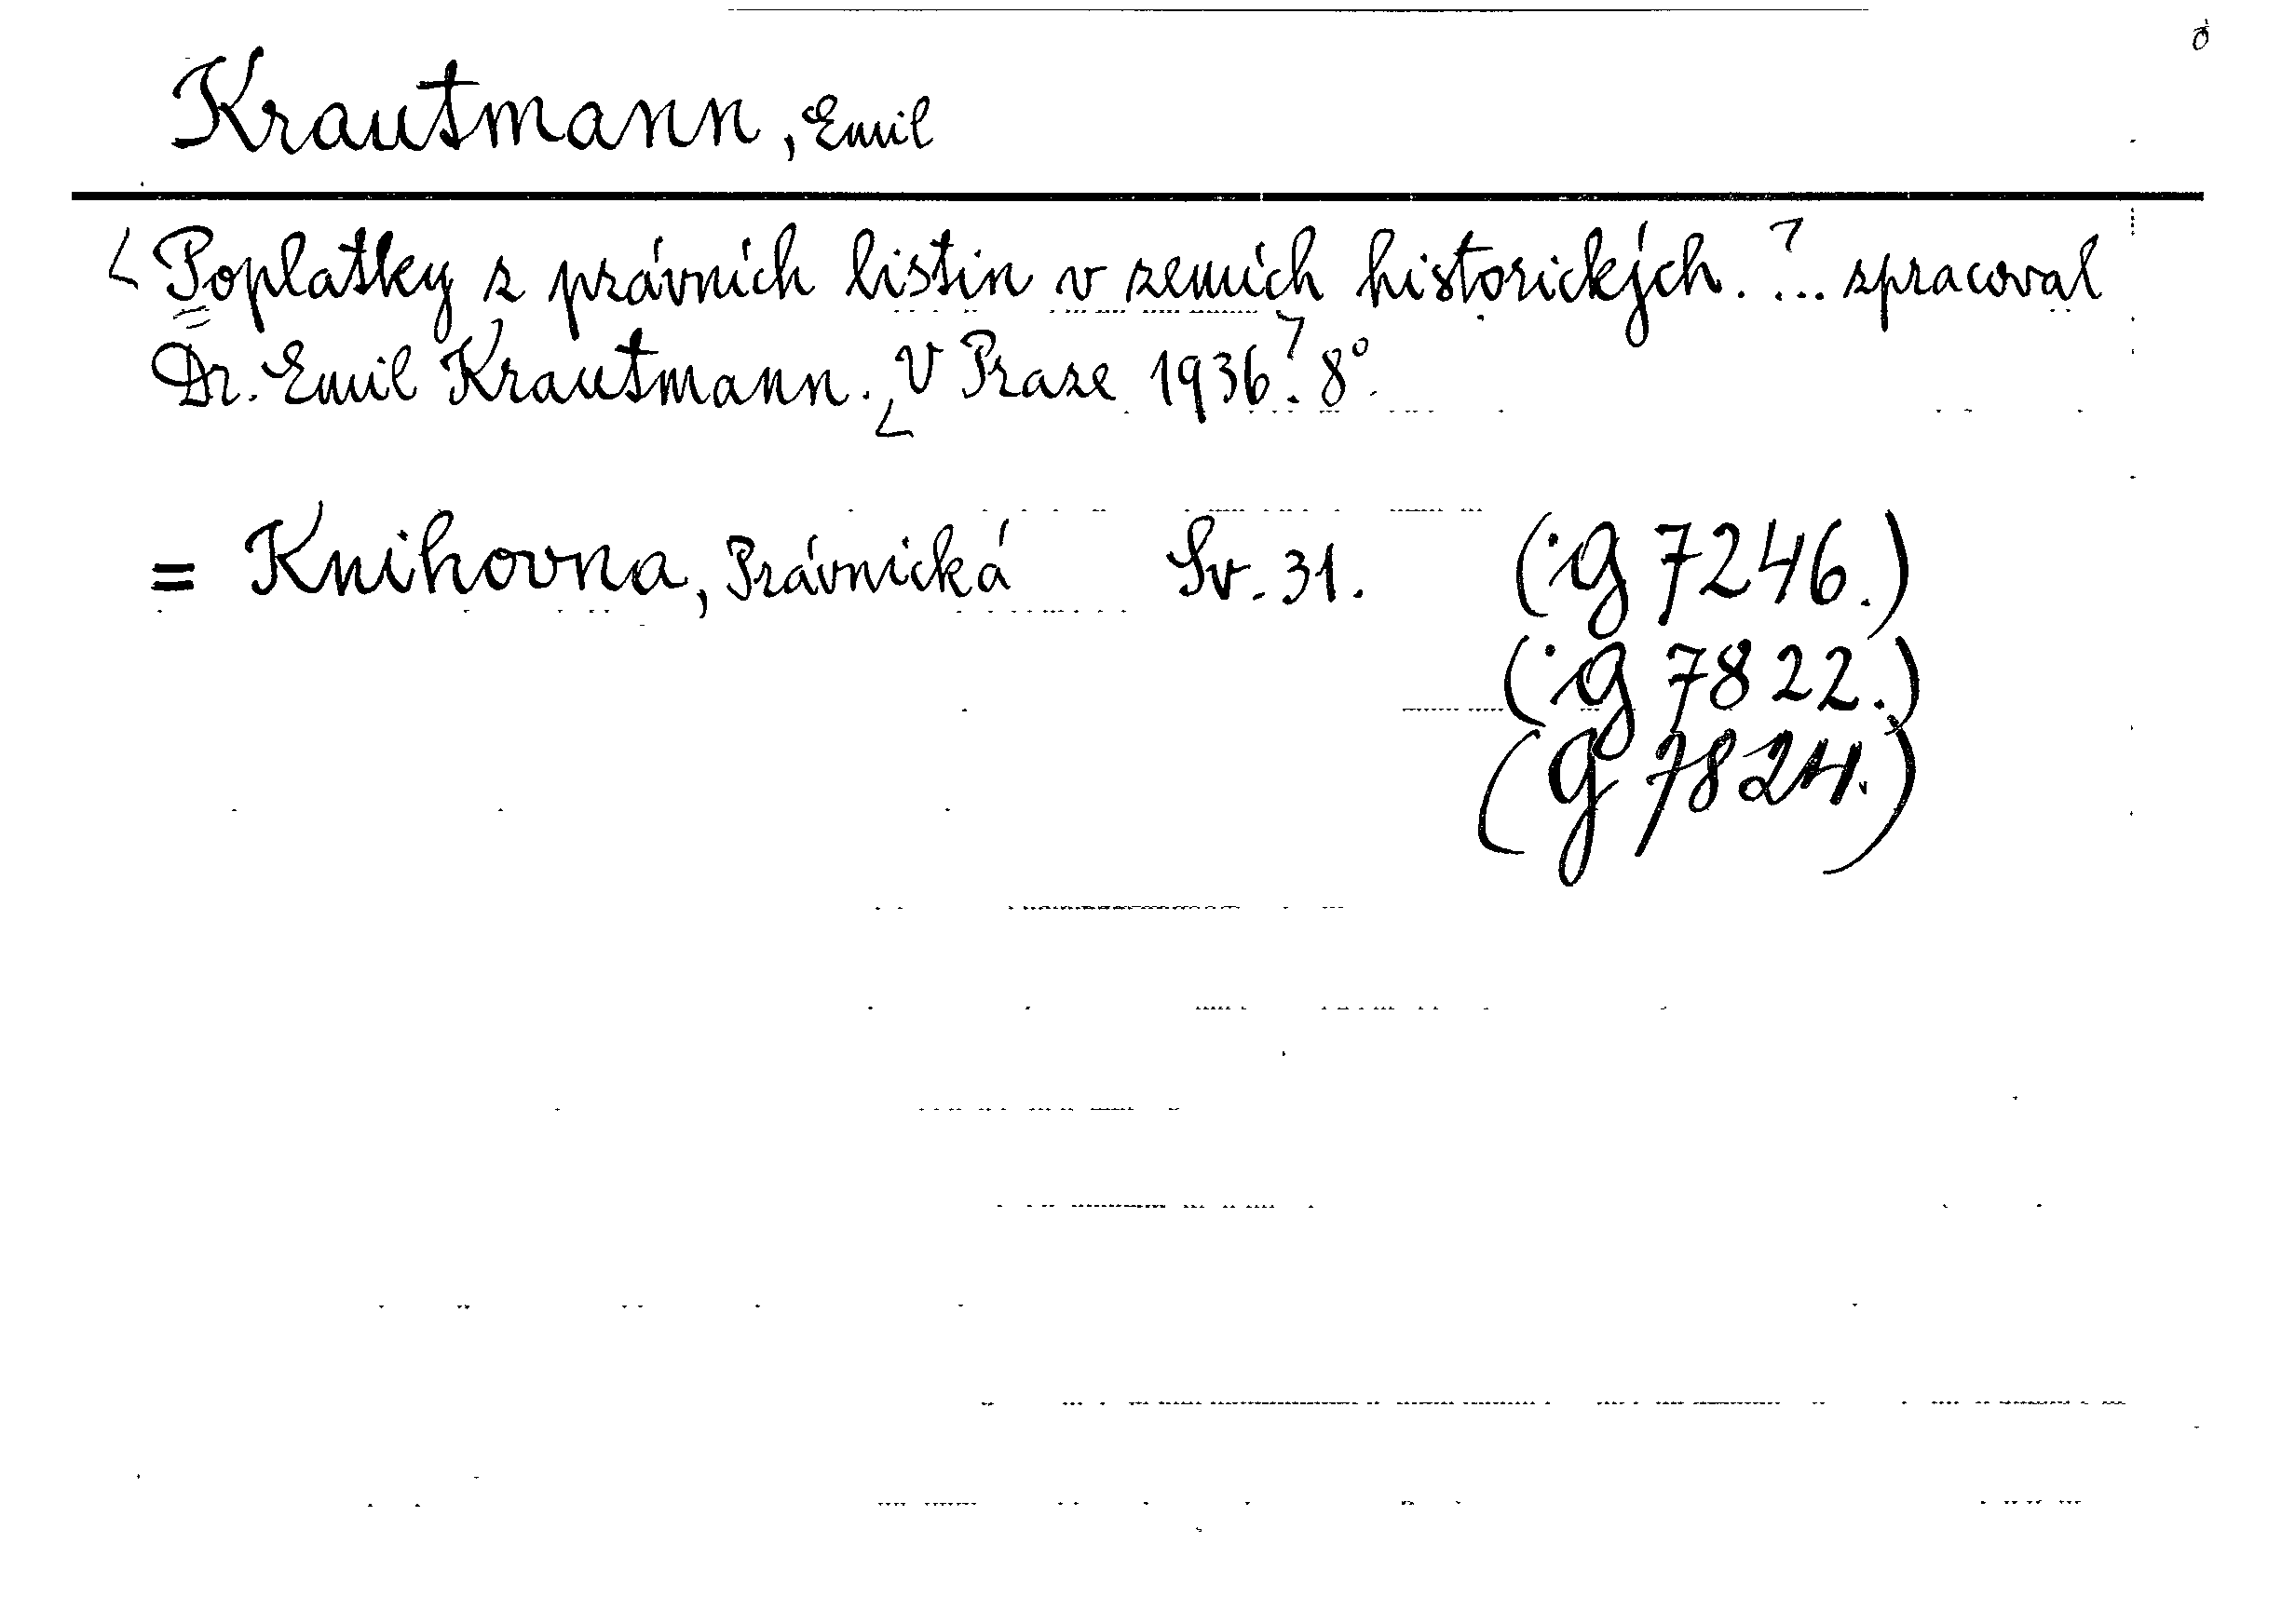 Krautmann, Emil
Poplatky z právních listin v zemích historických. ... zpracoval
Dr. Emil Krautmann. V Praze 1936. 8°.
= Knihovna, Právnická Sv. 31. (ig 7246.)
(ig 7822.)
(g 7824.)